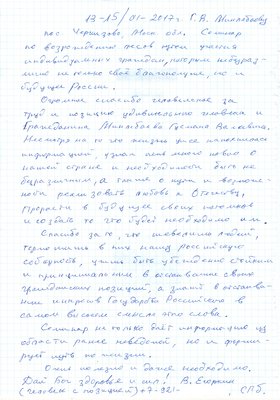 13-15/01-2017г Г.В. Миннебаеву
пос Черкизово, Моск обл. Семинар
по возрождению лесов путём участия
индивидуальных граждан, которым небезраз-
лично не только своё благополучие, но и
будущее России.
Огромное спасибо человеческое за
труд и позицию удивительного человека и
Гражданина Миннебаева Гусмана Валеевича.
Несмотря на то что жизнь уже наполнилась
информацией - узнал очень много нового о
нашей стране и необходимости быть не
безразличным, а также о пути и возможно-
сти реализовать любовь к Отечеству,
в будущее своих потомков
и создать то что будет необходимо им.
Спасибо за то, что позволили людей,
в них нашу российскую
соборность, учит быть убеждённо стойким
и принципиальным в отстаивании своих
гражданских позиций, а значит в отстаива-
нии интересов Государства Российского в
самом высоком смысле этого слова.
Семинар не только даёт информацию из
области ранее неведомой, но и форми-
рует путь по жизни.
Очень полезно и даже необходимо.
Дай Бог здоровья и сил! В. Егоркин
(человек с позицией) +7-921- СПб.